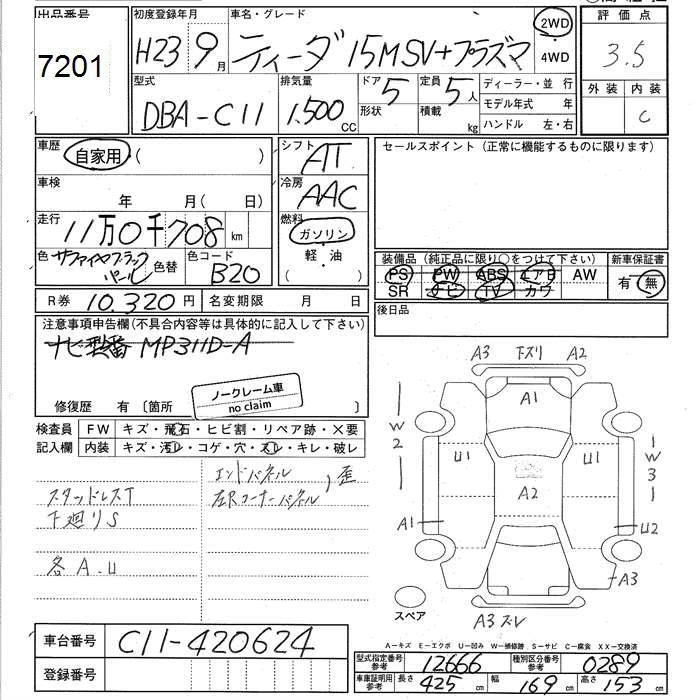 出品番号
7201
初度登録年月
H23 9月
車名・グレード
ティーダ 15M SV+プラズマ
2WD
4WD
評 価 点
3.5
外 装 内 装
C
型式
DBA-C11
排気量
1.500 CC
ドア 5
形状
定員 5人
積載 kg
ディーラー・並 行
モデル年式 年
ハンドル 左・右
車歴
自家用 ( )
車検
年 月( 日)
走行
11万0千708 km
色 サファイヤブラックパール
色替
色コード
B20
シフト
AT
冷房
AAC
燃料
ガソリン
軽・油
( )
セールスポイント(正常に機能するものに限ります)
装備品(純正品に限り○をつけて下さい)
PS PW ABS エアB AW
SR ナビ TV カワ
新車保証書
有 無
後日品
R券 10,320円
名変期限 月 日
注意事項申告欄(不具合内容等は具体的に記入して下さい)
ナビ型番 MP311D-A
ノークレーム車
no claim
修復歴 有 〔箇所 〕
検査員
記入欄
FW キズ・飛石・ヒビ割・リペア跡・X要
内装 キズ・汚レ・コゲ・穴・スレ・キレ・破レ
エンドパネル
左Rコーナーパネル, 歪
スタッドレスT
下廻りS
各A.U
A3 下ズリ A2
A1
W2
U1
U1
W3
A2
A1
U2
A3
スペア
A3 ズレ
車台番号
C11-420624
登録番号
A-キズ E-エクボ U-凹み W-補修跡 S-サビ C-腐食 XX-交換済
型式指定番号
参考
12666
種別区分番号
参考
0289
車庫証明用
参考
長さ 425 cm
幅 169 cm
高さ 153 cm